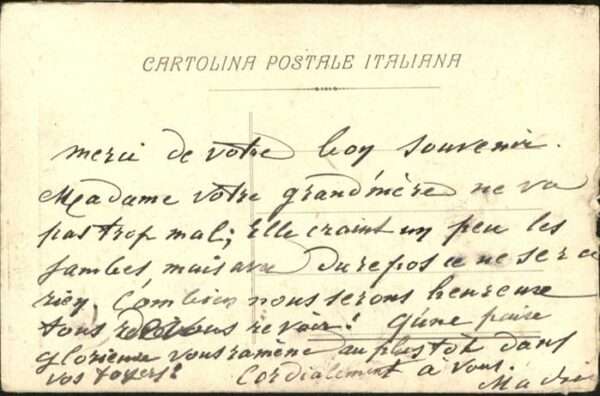 CARTOLINA POSTALE ITALIANA
merci de votre bon souvenir.
Madame votre grand'mère ne va
pas trop mal; Elle craint un peu les
jambes mais avec du repos ce ne sera
rien. Combien nous serons heureux
tous de vous revoir! Qu'une paix
glorieuse vous ramène au plus tôt dans
vos foyers!
Cordialement à vous.